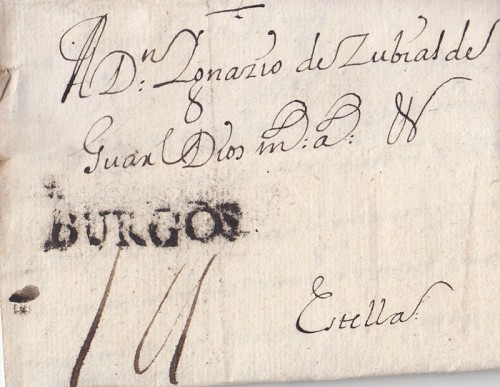 A Dn. Ygnazio de Zubialde
Guarl Dios m.s a.s
BURGOS
Estella